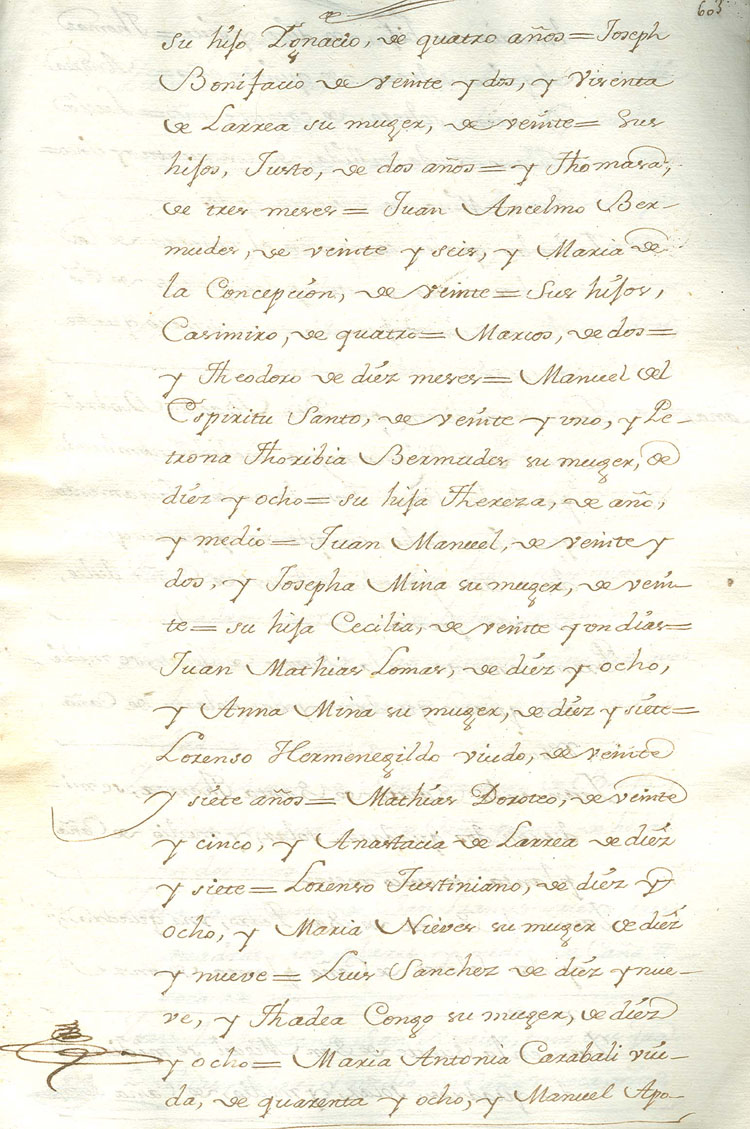 603
su hijo Ignacio, de quatro años = Joseph
Bonifacio de veinte y dos, y Visenta
de Larrea su muger, de veinte = Sus
hijos, Justo, de dos años = y Thomasa,
de tres meses = Juan Ancelmo Ber-
mudes, de veinte y seis, y Maria de
la Concepción, de veinte = Sus hijos,
Casimiro, de quatro = Marcos, de dos =
y Theodoro de diéz meses = Manuel del
Espiritu Santo, de veinte y uno, y Pe-
trona Thoribia Bermudes su muger, de
diéz y ocho = su hija Thereza, de año,
y medio = Juan Manuel, de veinte y
dos, y Josepha Mina su muger, de vein-
te = su hija Cecilia, de veinte y un días =
Juan Mathias Lomas, de diéz y ocho,
y Anna Mina su muger, de diéz y siéte =
Lorenso Hermenegildo viudo, de veinte
y siéte años = Mathías Doroteo, de veinte
y cinco, y Anastacia de Larrea de diéz
y siete = Lorenso Justiniano, de diéz y
ocho, y Maria Niéves su muger de diéz
y nueve = Luis Sanchez de diéz y nue-
ve, y Thadea Congo su muger, de diéz
y ocho = Maria Antonia Carabali viu-
da, de quarenta y ocho, y Manuel Apo-